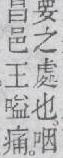 要之處也。咽
昌邑王嗌痛。